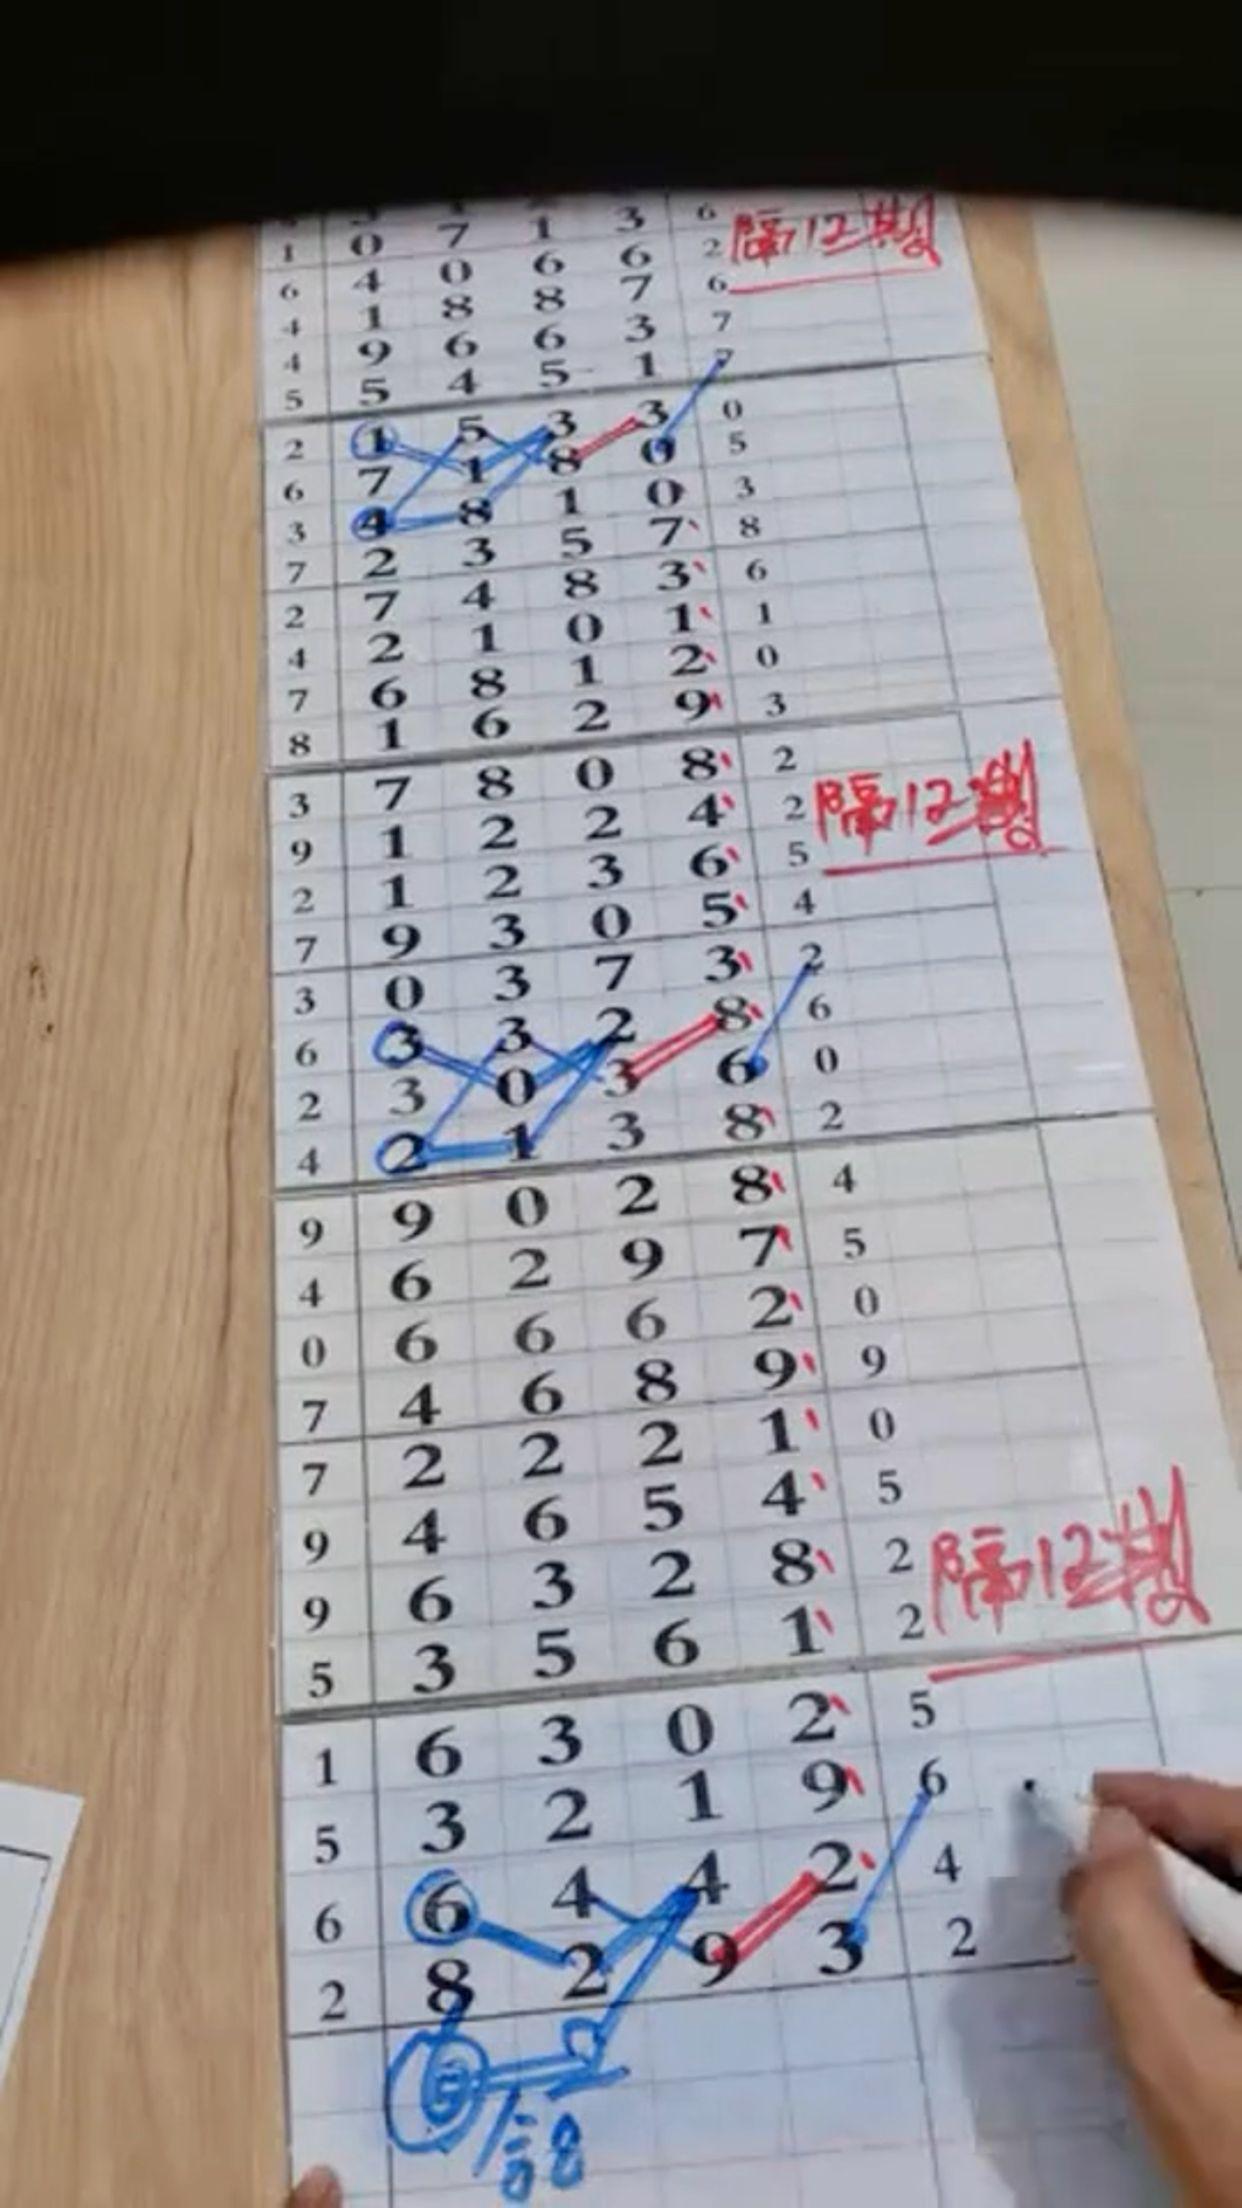 6
1 0 7 1 3 2 隔12期
6 4 0 6 6 6
4 1 8 8 7 7
4 9 6 6 3 7
5 5 4 5 1
2 1 5 3 3 0
6 7 1 8 0 5
3 4 8 1 0 3
7 2 3 5 7 8
2 7 4 8 3 6
4 2 1 0 1 1
7 6 8 1 2 0
8 1 6 2 9 3
3 7 8 0 8 2
9 1 2 2 4 2 隔12期
2 1 2 3 6 5
7 9 3 0 5 4
3 0 3 7 3 2
6 3 3 2 8 6
2 3 0 3 6 0
4 2 1 3 8 2
9 9 0 2 8 4
4 6 2 9 7 5
0 6 6 6 2 0
7 4 6 8 9 9
7 2 2 2 1 0
9 4 6 5 4 5
9 6 3 2 8 2 隔12期
5 3 5 6 1 2
1 6 3 0 2 5
5 3 2 1 9 6
6 6 4 4 2 4
2 8 2 9 3 2